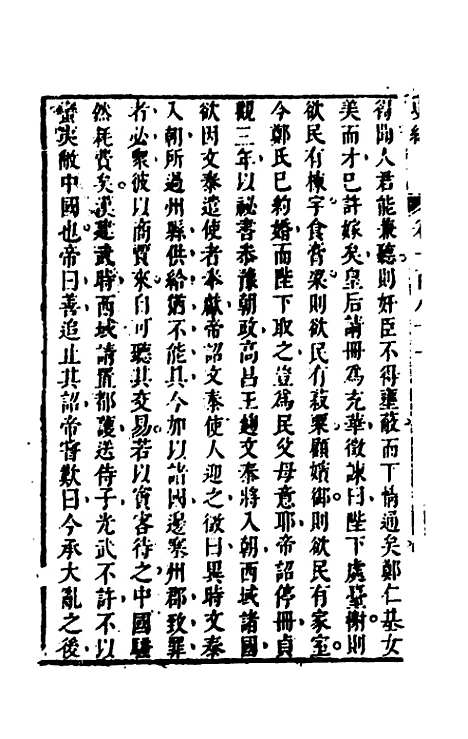 得聞人君能兼聽則奸臣不得壅蔽而下情通矣鄭仁基女
美而才已許嫁矣皇后請冊爲充華徵諫曰陛下處臺榭則
欲民有棟宇食膏粱則欲民有菽粟顧嬪御則欲民有家室
今鄭氏已約婚而陛下取之豈爲民父母意耶帝詔停冊貞
觀三年以祕書叅豫朝政高昌王麴文泰將入朝西域諸國
欲因文泰遣使者奉獻帝詔文泰使人迎之徵曰異時文泰
入朝所過州縣供給猶不能具今加以諸國邊衆州郡致罪
者必衆彼以商賈來自可聽其交易若以賓客待之中國騷
然耗費矣漢建武時西域請置都護送侍子光武不許不以
蠻夷敝中國也帝曰善追止其詔帝嘗歎曰今承大亂之後